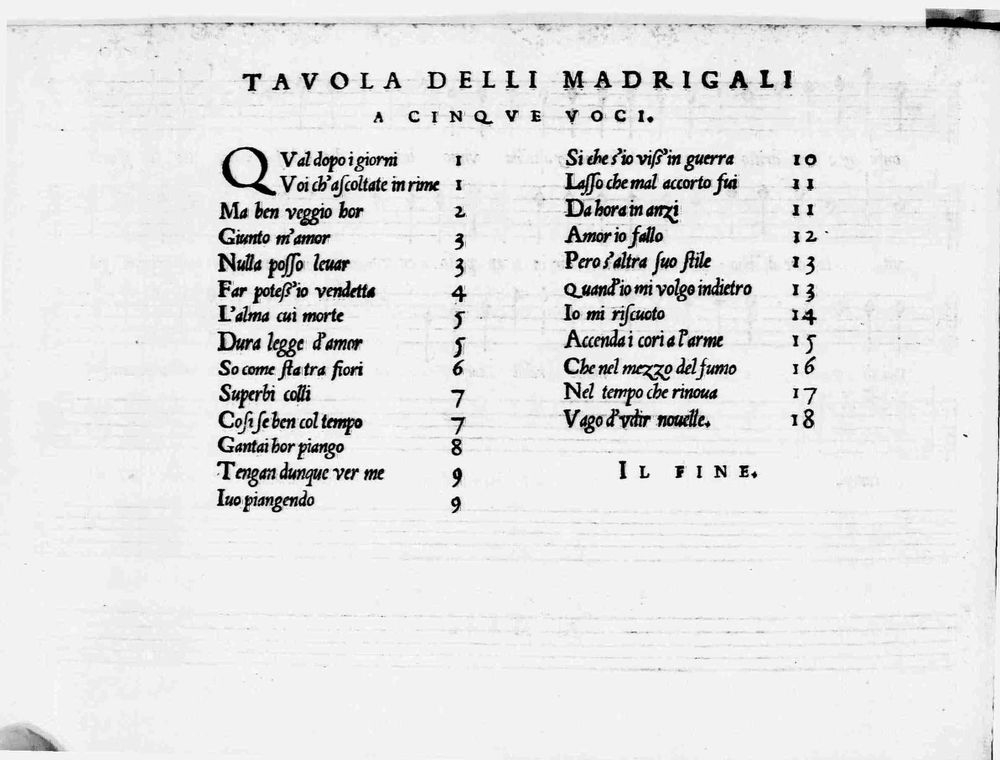 TAVOLA DELLI MADRIGALI
A CINQVE VOCI.
QVal dopo i giorni 1
Voi ch'ascoltate in rime 1
Ma ben veggio hor 2
Giunto m'amor 3
Nulla posso leuar 3
Far potess'io vendetta 4
L'alma cui morte 5
Dura legge d'amor 5
So come sta tra fiori 6
Superbi colli 7
Cosi se ben col tempo 7
Gantai hor piango 8
Tengan dunque ver me 9
Iuo piangendo 9
Si che s'io viss' in guerra 10
Lasso che mal accorto fui 11
Da hora in anzi 11
Amor io fallo 12
Pero s'altra suo stile 13
Quand'io mi volgo indietro 13
Io mi riscuoto 14
Accenda i cori a l'arme 15
Che nel mezzo del fumo 16
Nel tempo che rinoua 17
Vago d'vdir nouelle. 18
IL FINE.